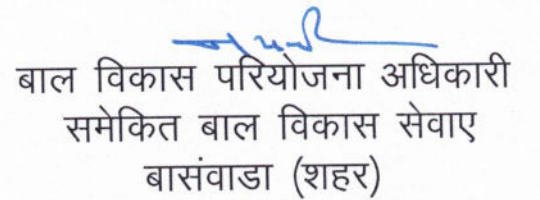 बाल विकास परियोजना अधिकारी
समेकित बाल विकास सेवाए
बासंवाडा (शहर)